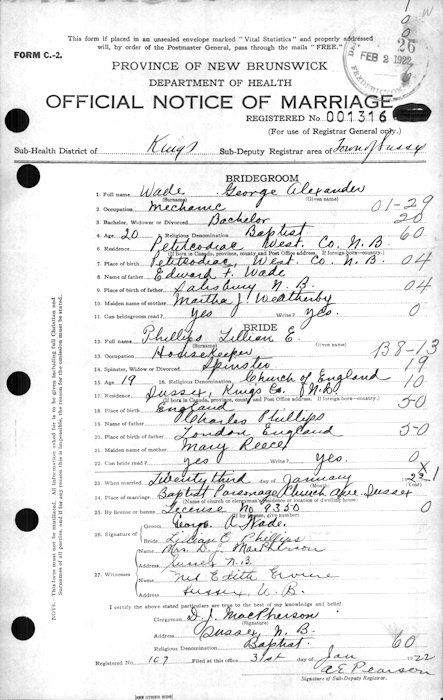 This form if placed in an unsealed envelope marked "Vital Statistics" and properly addressed
will, by order of the Postmaster General, pass through the mails "FREE."
FORM C.-2.
FEB 2 1922
26
PROVINCE OF NEW BRUNSWICK
DEPARTMENT OF HEALTH
OFFICIAL NOTICE OF MARRIAGE
REGISTERED No. 001316
(For use of Registrar General only.)
Sub-Health District of Kings Sub-Deputy Registrar area of Town of Sussex
BRIDEGROOM
1. Full name Wade George Alexander
(Surname) (Given name)
2. Occupation Mechanic 01-29
3. Bachelor, Widower or Divorced Bachelor 20
4. Age 20 5. Religious Denomination Baptist 60
6. Residence Petitcodiac West. Co. N.B.
(If born in Canada, province, county and Post Office address. If foreign-born—country.)
7. Place of birth Petitcodiac, West. Co. N.B. 04
8. Name of father Edward F. Wade
9. Place of birth of father Salisbury N.B. 04
10. Maiden name of mother Martha J. Weatherby
11. Can bridegroom read? Yes Write? Yes. 0
BRIDE
12. Full name Phillips Lillian E.
(Surname) (Given name)
13. Occupation Housekeeper B8-13
14. Spinster, Widow or Divorced Spinster 19
15. Age 19 16. Religious Denomination Church of England 10
17. Residence Sussex, Kings Co. N.B.
(If born in Canada, province, county and Post Office address. If foreign-born—country.)
18. Place of birth England 50
19. Name of father Charles Phillips
20. Place of birth of father London England 50
21. Maiden name of mother Mary Reece
22. Can bride read? yes Write? Yes. 0
23. When married Twenty third day of January 1922
(Month)
24. Place of marriage Baptist Parsonage Church Ave. Sussex
(Name of church or clergyman's residence or location of dwelling house)
25. By license or banns License No 9350 0
(If by license, give number)
Groom George A. Wade.
26. Signature of
Bride Lillian E. Phillips
Mrs. D. J. MacPherson
Sussex N.B.
27. Witnesses
Edith
Sussex, N.B.
I certify the above stated particulars are true to the best of my knowledge and belief.
Clergyman D.J. MacPherson
(Signature)
Address Sussex, N.B.
Religious Denomination Baptist. 60
Registered No. 107 Filed at this office 31st of Jan 1922
A E Pearson
Signature of Sub-Deputy Registrar.
[SEE OTHER SIDE]
NOTE.—All information asked for is to be given including full Christian and
Surnames of all persons. If this is impossible, the reason for the omission must be stated.